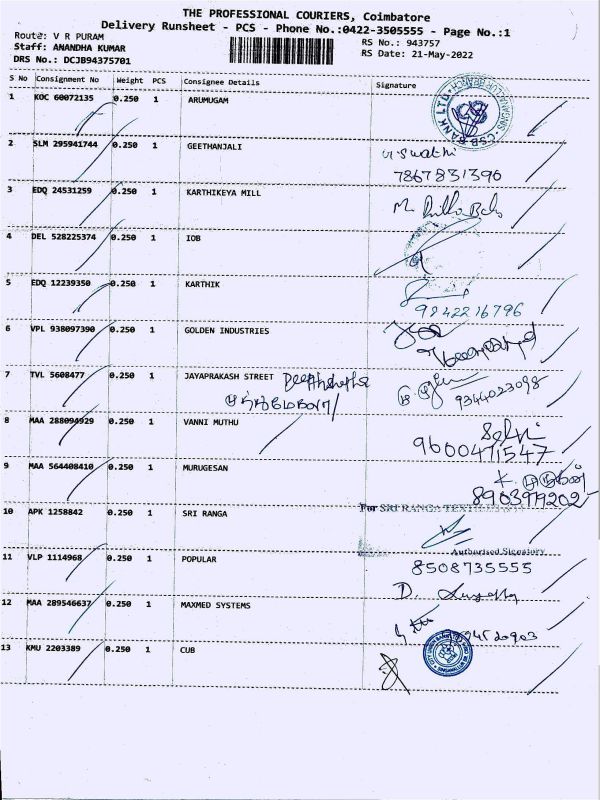 THE PROFESSIONAL COURIERS, Coimbatore
Delivery Runsheet - PCS - Phone No.:0422-3505555 - Page No.:1
Route: V R PURAM
RS No.: 943757
Staff: ANANDHA KUMAR
RS Date: 21-May-2022
DRS No.: DCJB94375701
S No Consignment No Weight PCS Consignee Details Signature
1 KOC 60072135 0.250 1 ARUMUGAM
CSB BANK LTD
2 SLM 295941744 0.250 1 GEETHANJALI
Swathi
7867831390
3 EDQ 24531259 0.250 1 KARTHIKEYA MILL
4 DEL 528225374 0.250 1 IOB
5 EDQ 12239350 0.250 1 KARTHIK
9242216796
6 VPL 938097390 0.250 1 GOLDEN INDUSTRIES
7 TVL 5608477 0.250 1 JAYAPRAKASH STREET
9344023098
8 MAA 288094929 0.250 1 VANNI MUTHU
Selvi
9600471547
9 MAA 564408410 0.250 1 MURUGESAN
8903979202
10 APK 1258842 0.250 1 SRI RANGA
For SRI RANGA
Authorised Signatory
11 VLP 1114968 0.250 1 POPULAR
8508735555
12 MAA 289546637 0.250 1 MAXMED SYSTEMS
13 KMU 2203389 0.250 1 CUB